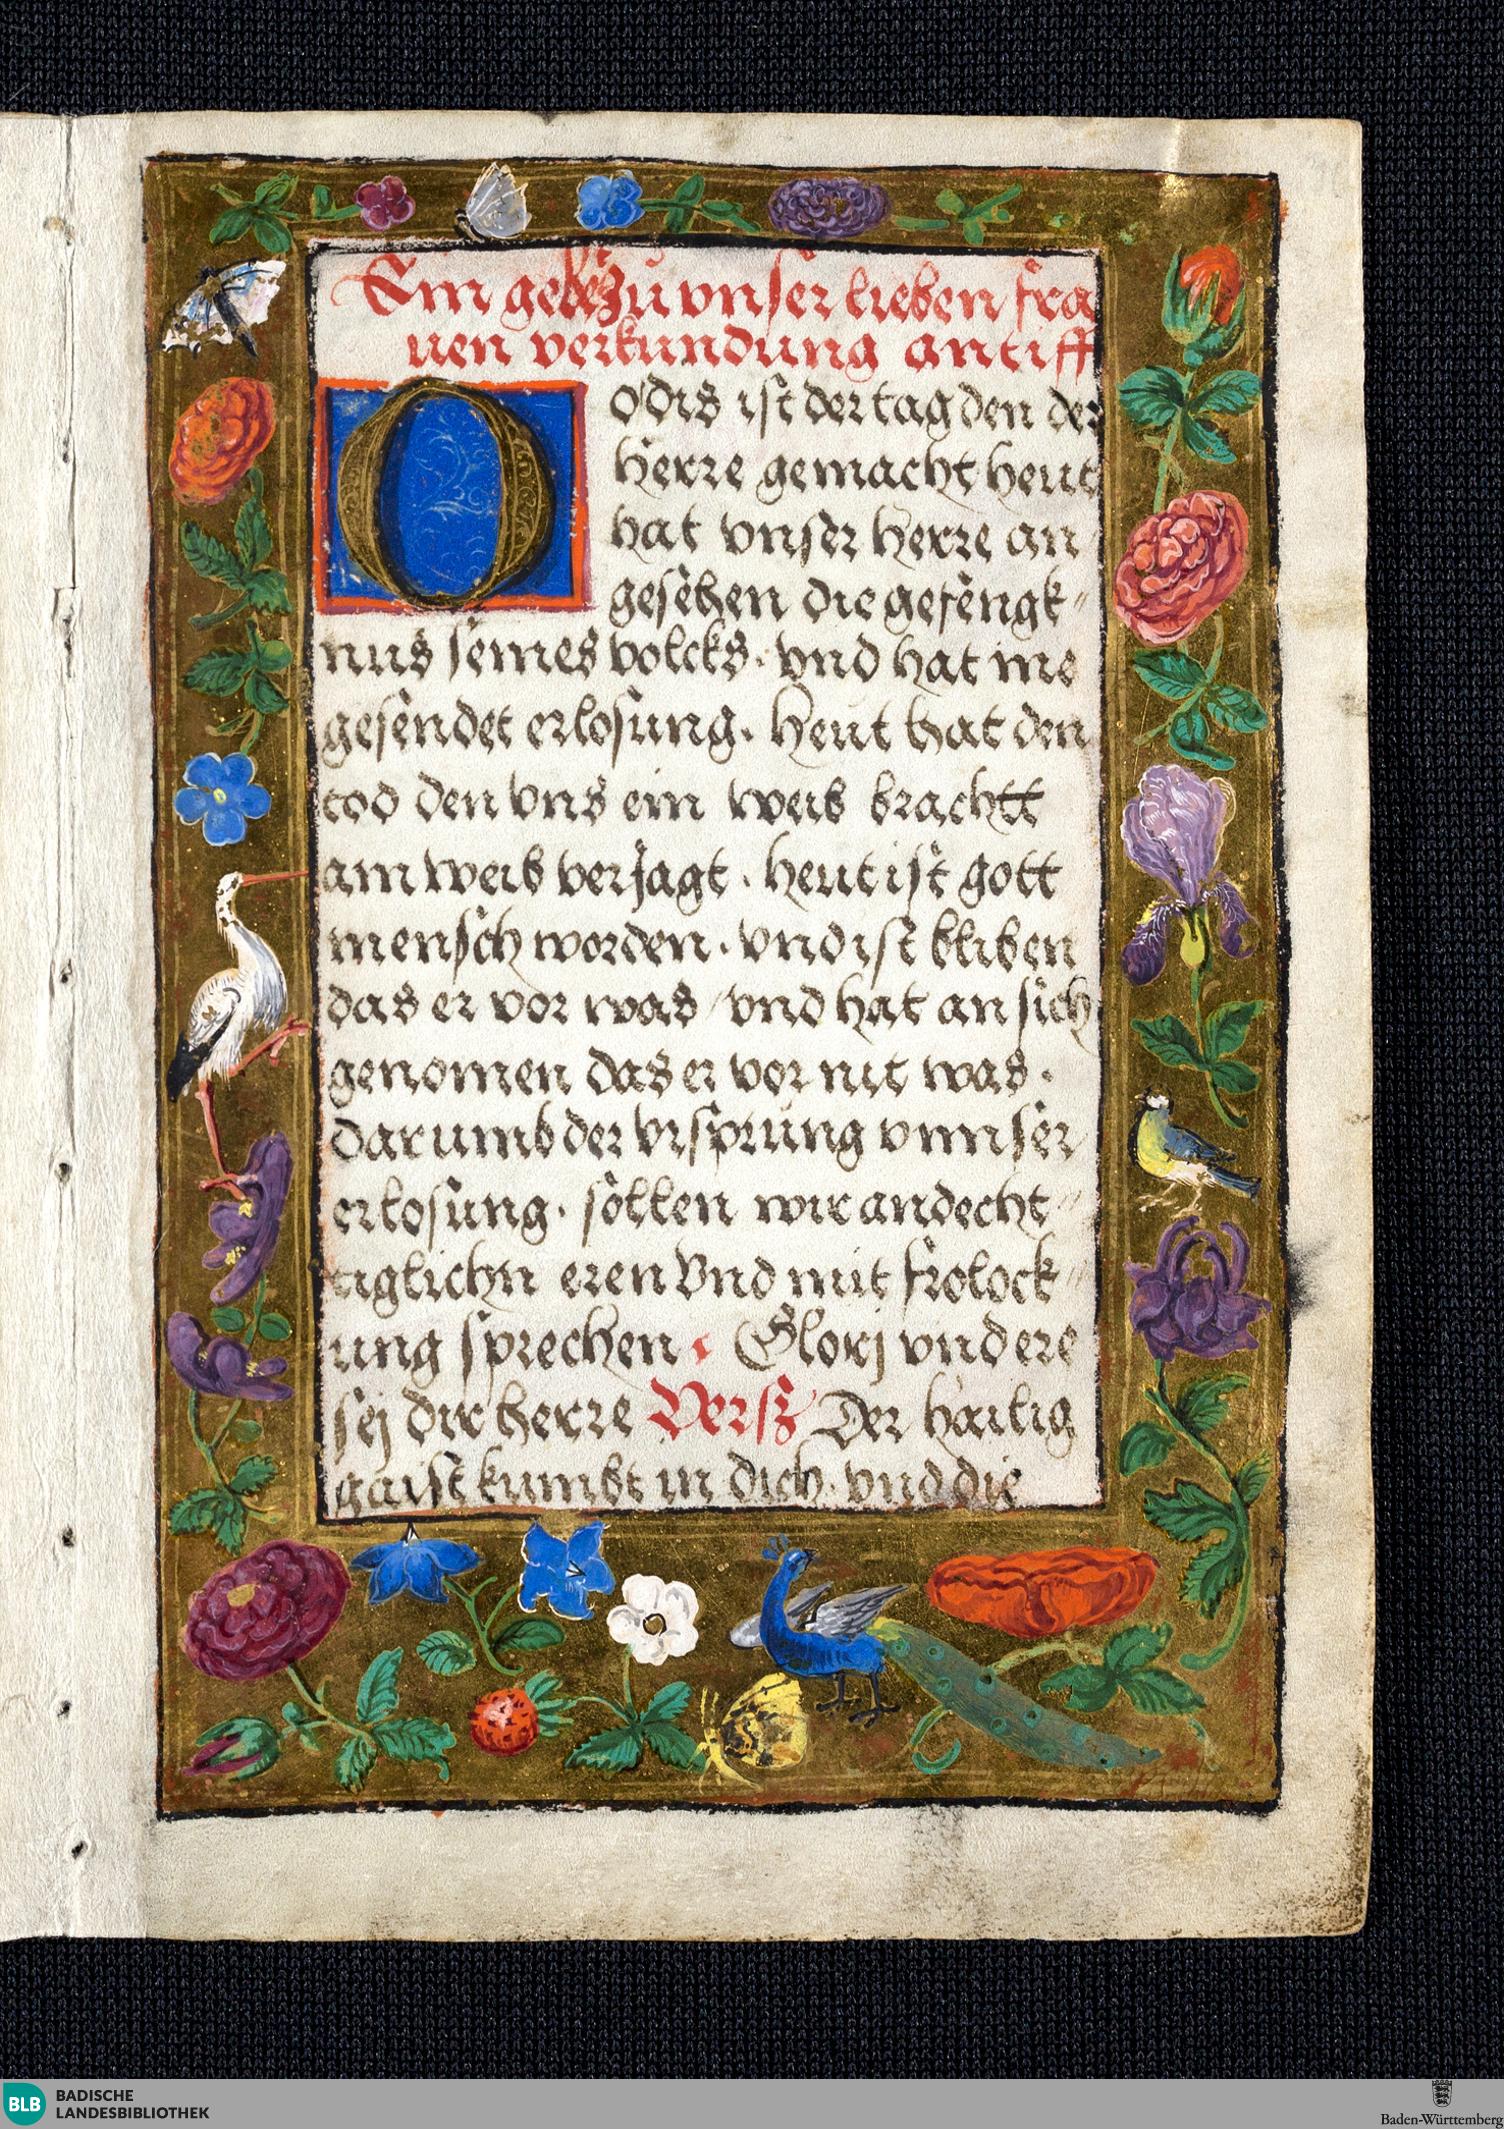 Ein gebet zu vnser lieben fra
uen verkundung antiff
O Odis ist der tag den der
herre gemacht heut
hat vnser herre an
gesehen die gefengk"
nus seines volcks. vnd hat ine
gesendet erlosung. heut hat den
tod den vns ein weib brachtt
ain weib verjagt. heut ist gott
mensch worden. vnd ist bliben
das er vor was / vnd hat an sich
genomen das er vor nit was.
darumb der vrsprung vnnser
erlosung. sollen wir andecht"
tiglichn eren Vnd mit frolock"
ung sprechen. Glorj vnd ere
sej dir herre Versz Der hailig
gaist kumbt in dich. vnd die
BLB BADISCHE
LANDESBIBLIOTHEK
Baden-Württemberg